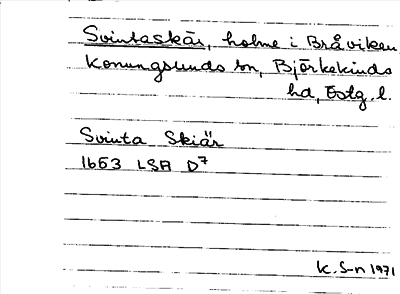 Svintaskär, holme i Bråviken,
Konungsunds sn, Björkekinds
hd, Östg. l.
Svinta Skiär
1653 LSA D7
K. S-n 1971